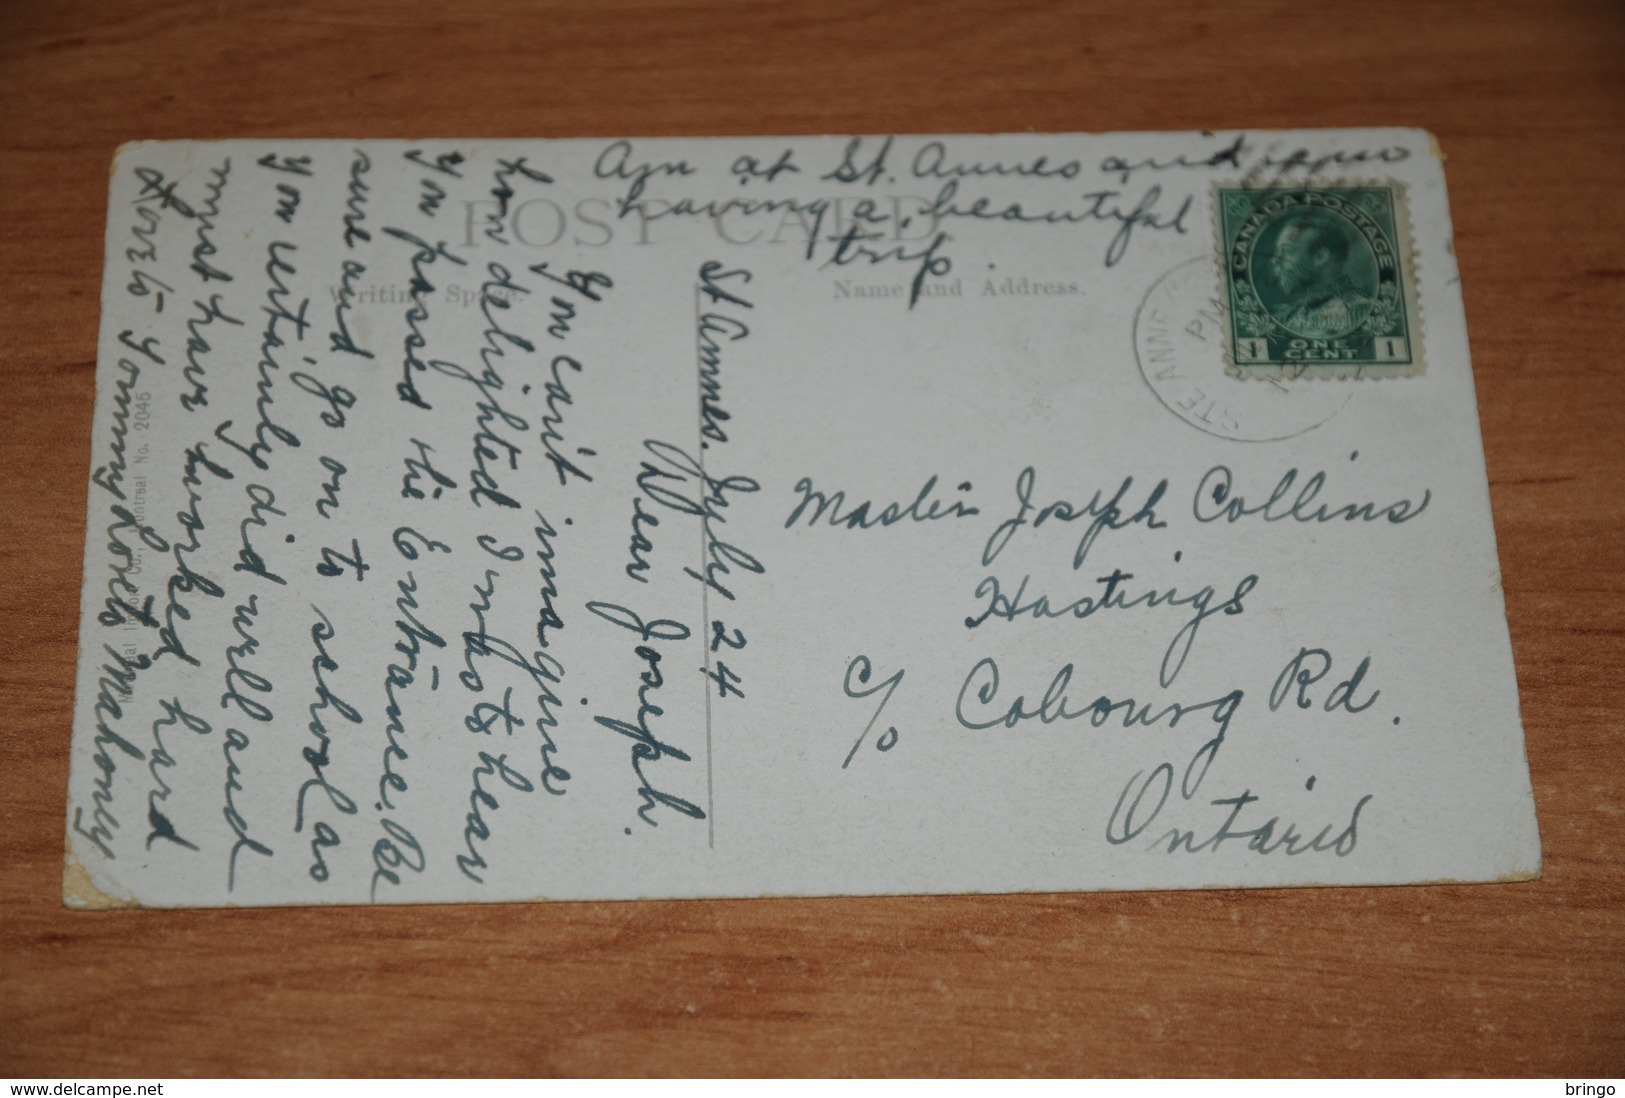 Am at St. Annes and am
having a beautiful
trip.
POST CARD
Writing Space.
Name and Address.
St Annes. July 24
Dear Joseph.
You can't imagine
how delighted I was to hear
you passed the Entrance. Be
sure and go on to school as
you certainly did well and
must have worked hard
Mahony
Montreal No. 2046
Master Joseph Collins
Hastings
c/o Cobourg Rd.
Ontario
CANADA POSTAGE
1 ONE CENT 1
STE ANNE
PM
bringo
delcampe.net